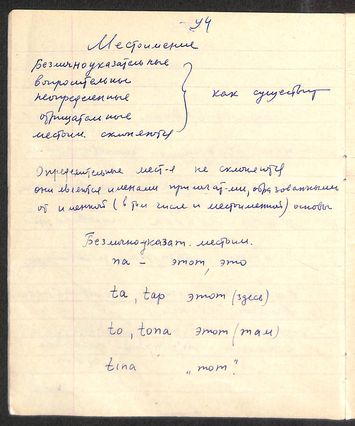 - 44
Местоимение
Безличноуказательные
вопросительные
неопределенные
отрицательные
местоим. склоняются
как существит
Определительные мест-я не склоняются
они являются именами прилагат-ми, образованными
от именной (в том числе и местоименной) основы
Безличноуказат. местоим.
па - этот, это
ta, tap этот (здесь)
to, tona этот (там)
tina „тот"